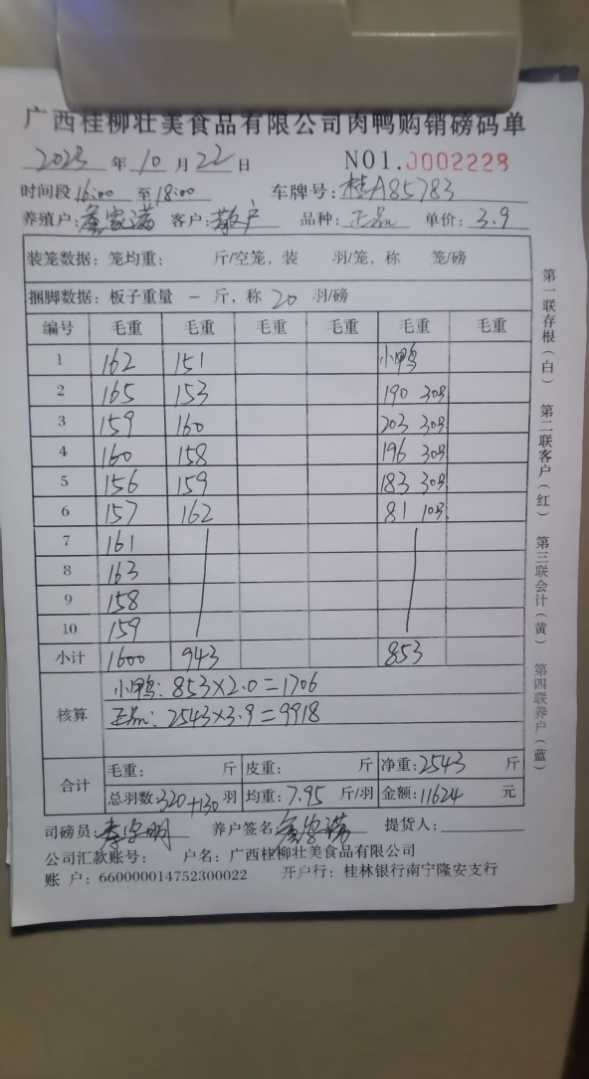 广西桂柳壮美食品有限公司肉鸭购销磅码单
2023 年 10 月 22 日 NO1.0002228
时间段 16:00 至 18:00 车牌号: 桂A85783
养殖户: 客户: 散户 品种: 正品 单价: 3.9
装笼数据: 笼均重: 斤/空笼, 装 羽/笼, 称 笼/磅
捆脚数据: 板子重量 一 斤, 称 20 羽/磅
编号 毛重 毛重 毛重 毛重 毛重 毛重
1 162 151 小鸭
2 165 153 190 30羽
3 159 160 203 30羽
4 160 158 196 30羽
5 156 159 183 30羽
6 157 162 81 10羽
7 161
8 163
9 158
10 159
小计 1600 943 853
核算
小鸭: 853×2.0=1706
正品: 2543×3.9=9918
合计
毛重: 斤 皮重: 斤 净重: 2543 斤
总羽数 320+130 羽 均重: 7.95 斤/羽 金额: 11624 元
司磅员: 养户签名: 提货人:
公司汇款账号: 户名: 广西桂柳壮美食品有限公司
账 户: 660000014752300022 开户行: 桂林银行南宁隆安支行
第一联存根(白) 第二联客户(红) 第三联会计(黄) 第四联养户(蓝)